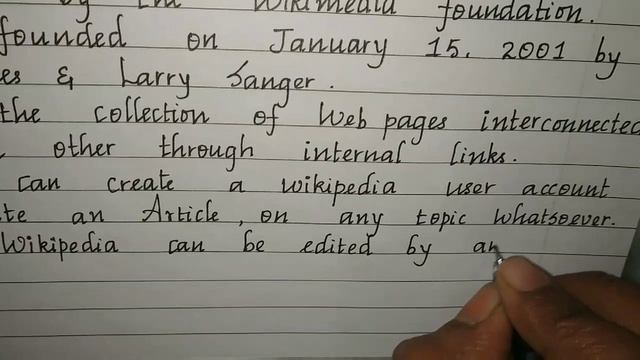 by the Wikimedia foundation.
founded on January 15, 2001 by
es & Larry Sanger.
the collection of Web pages interconnected
other through internal links.
can create a wikipedia user account
te an Article, on any topic whatsoever.
Wikipedia can be edited by an